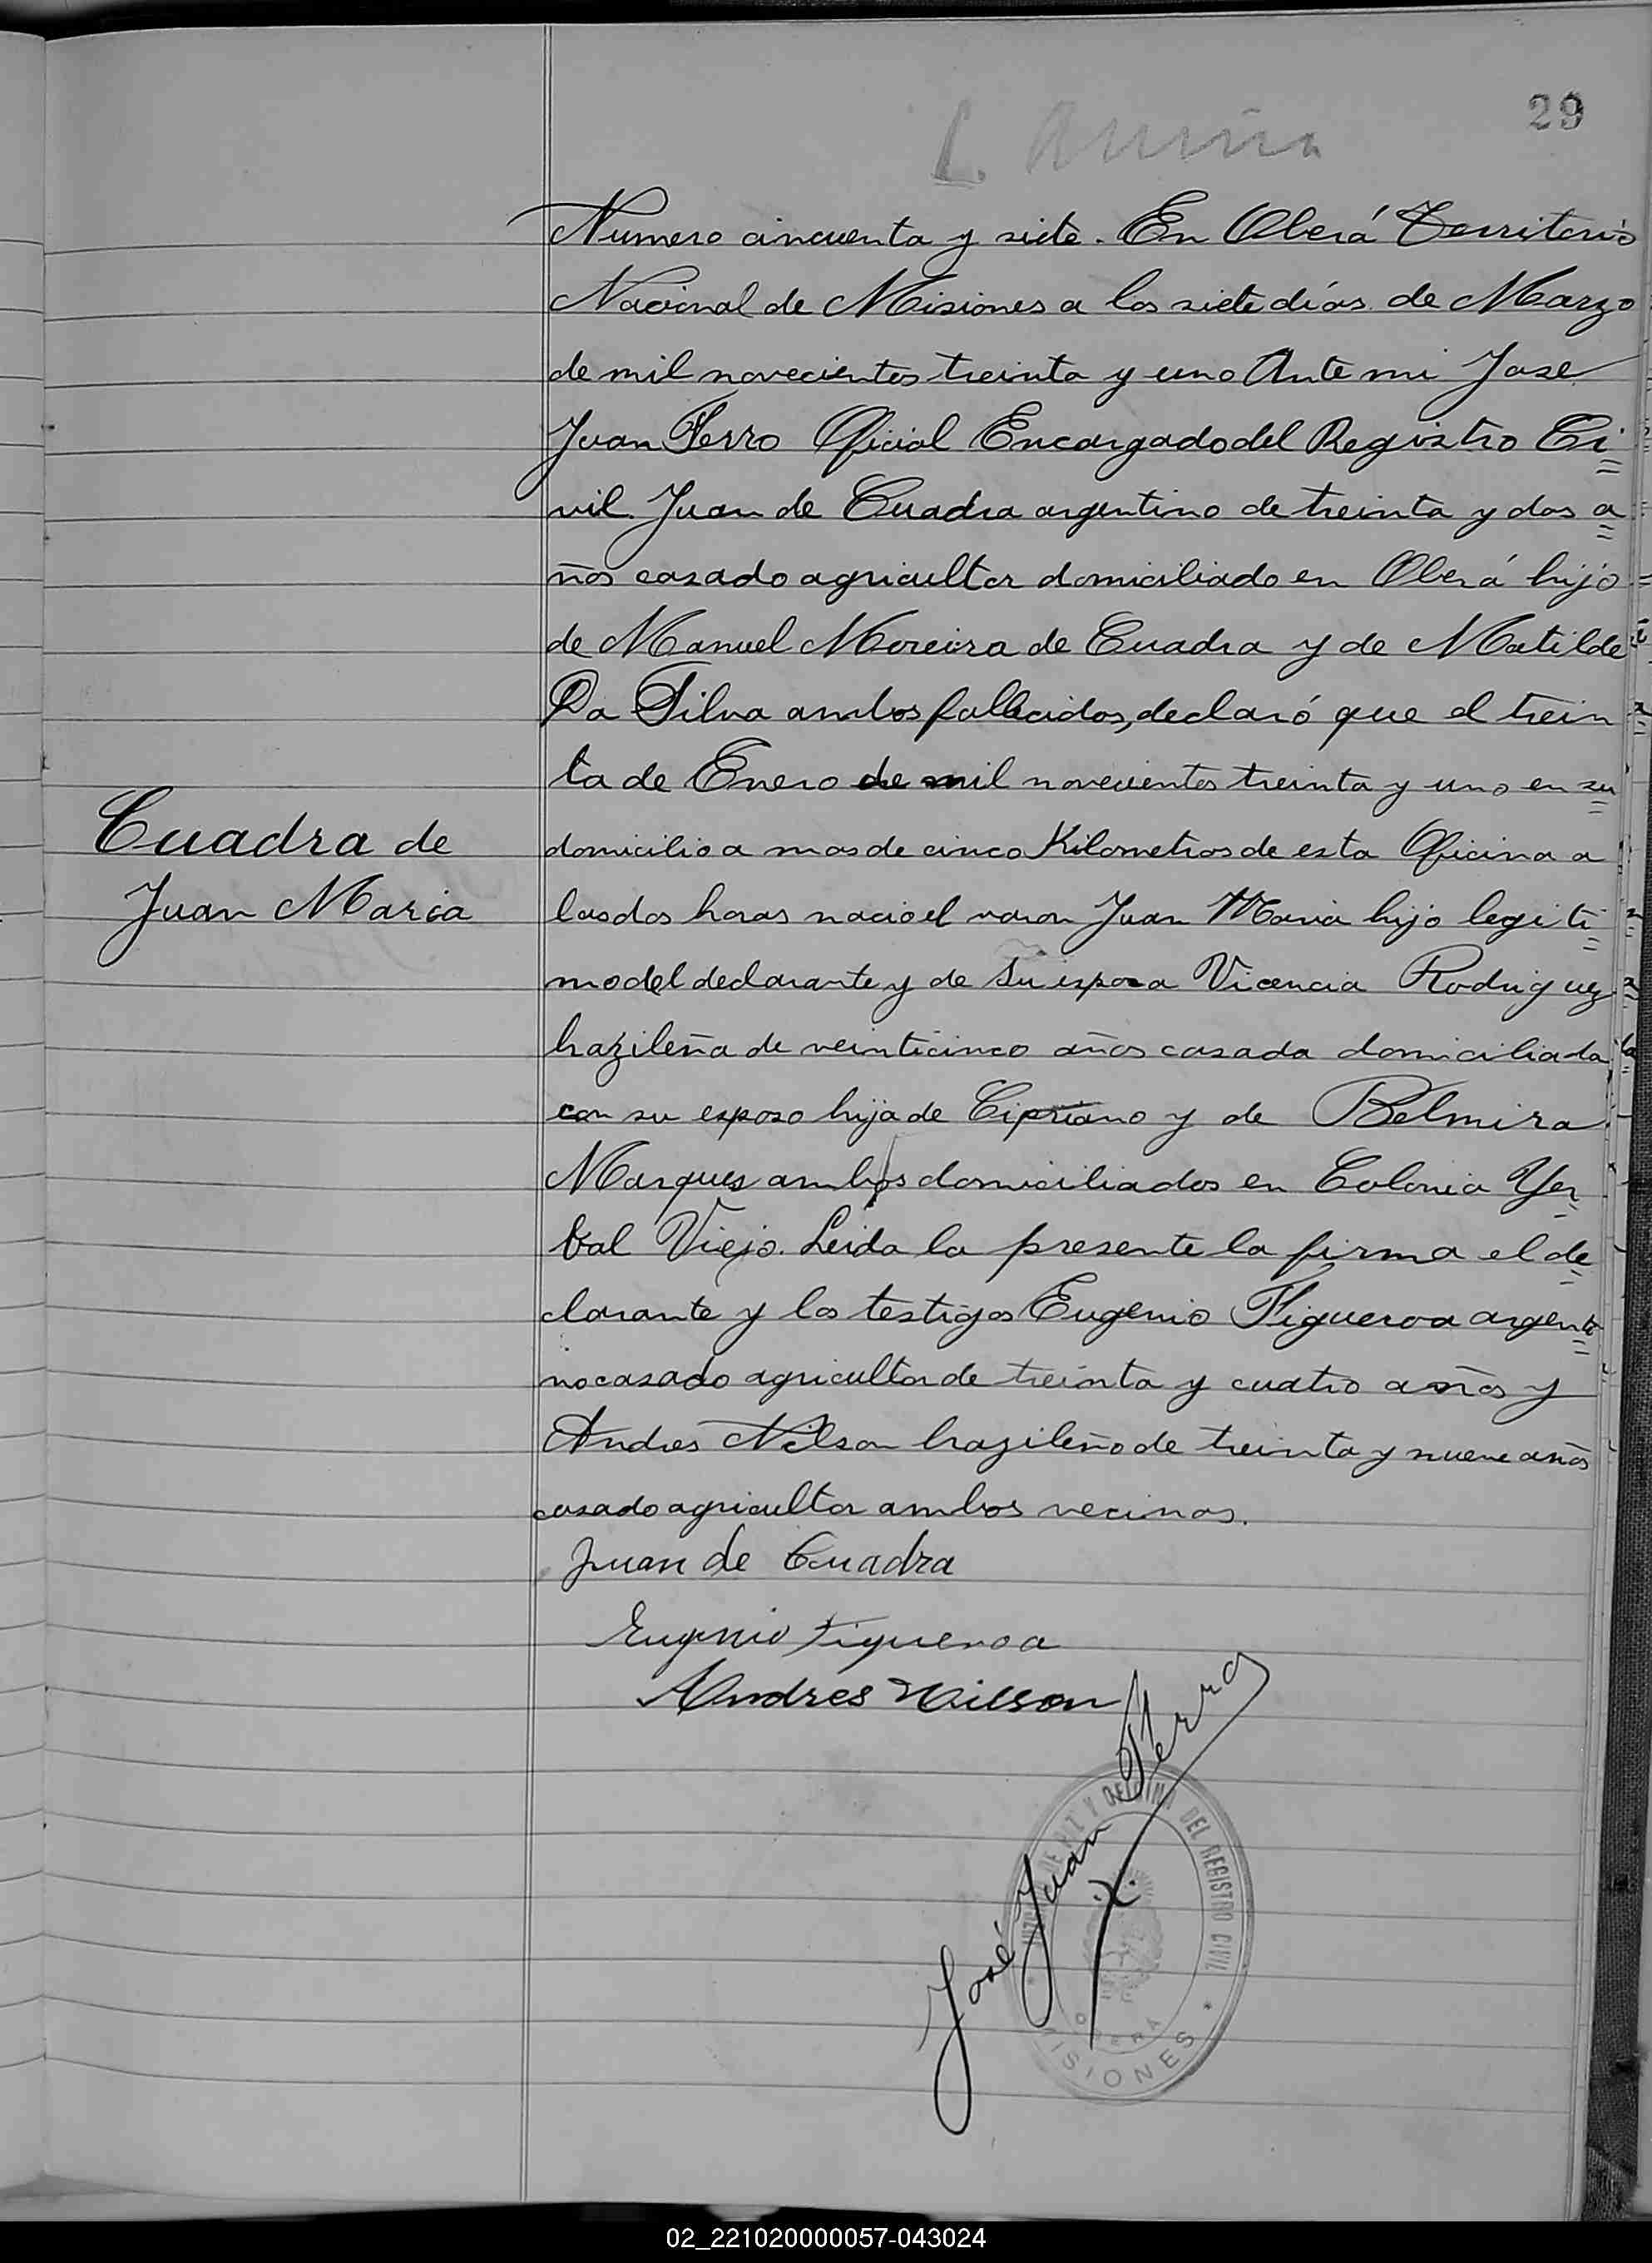 29
Numero cincuenta y siete. En Oberá Territorio
Nacional de Misiones a los siete días de Marzo
de mil novecientos treinta y uno Ante mi Jose
Juan Ferro Oficial Encargado del Registro Ci=
vil. Juan de Cuadra argentino de treinta y dos a=
ños casado agricultor domiciliado en Oberá hijo
de Manuel Moreira de Cuadra y de Matilde
Da Silva ambos fallecidos, declaró que el trein
ta de Enero de mil novecientos treinta y uno en su=
domicilio a mas de cinco Kilometros de esta Oficina a
las dos horas nacio el varon Juan Maria hijo legiti=
mo del declarante y de su esposa Vicencia Rodriguez
brazileña de veinticinco años casada domiciliada
con su esposo hija de Cipriano y de Belmira
Marques ambos domiciliados en Colonia Yer=
bal Viejo. Leida la presente la firma el de=
clarante y los testigos Eugenio Figueroa argenti=
no casado agricultor de treinta y cuatro años y
Andres Nilson brazileño de treinta y nueve años
casado agricultor ambos vecinos.
Cuadra de
Juan Maria
Juan de Cuadra
Eugenio Figueroa
Andres Nilson
José Juan Ferro
JUZGADO DE PAZ Y OFICINA DEL REGISTRO CIVIL
OBERÁ
* MISIONES *
02_221020000057-043024